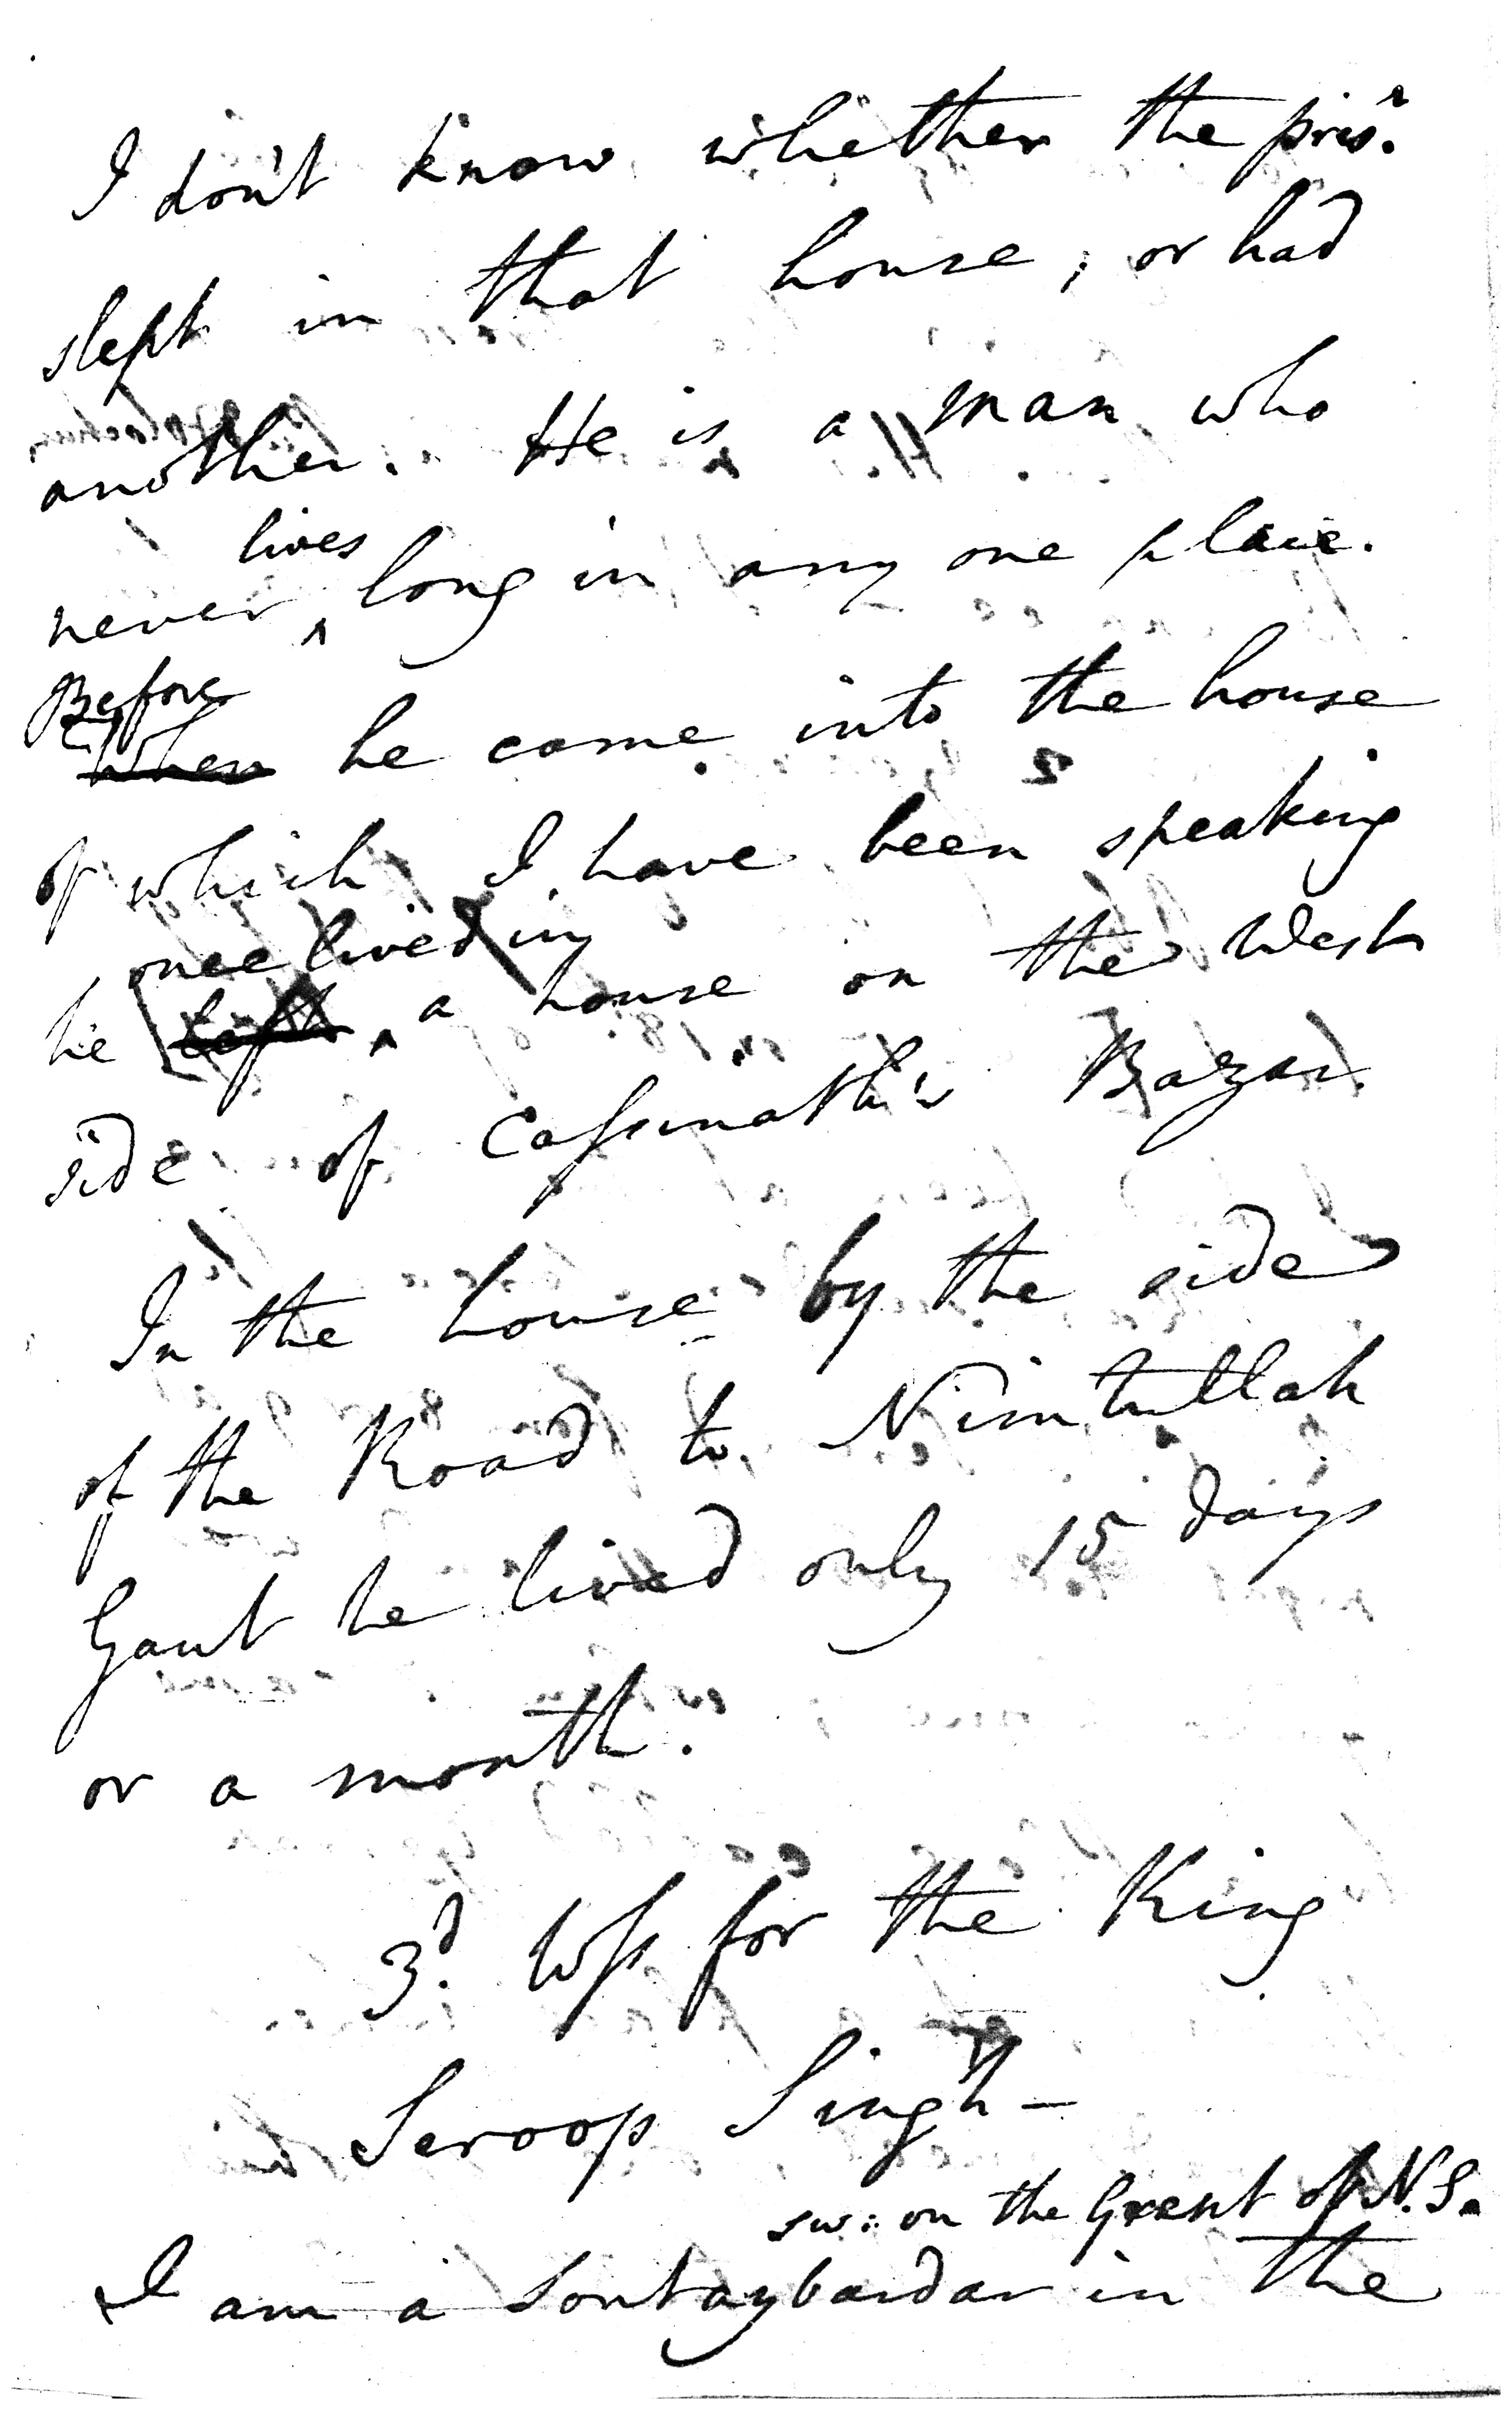 I don't know whether the pris.r
slept in that house, or had
another. He is a man who
lives
never ^ long in any one place.
Before
When he came into the house
of which I have been speaking
once lived in
he left ^ a house on the West
side of Cassinath's Bazar.
In the house by the side
of the Road to Nimtullah
Gaut he lived only 15 days
or a month.
3.d Wss for the King
Seroop Singh —
sw: on the of N.S.
I am a Sontaybardar in the